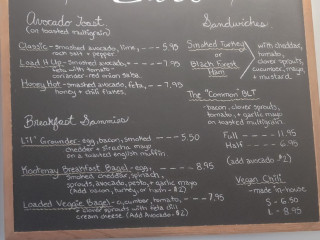 Avocado Toast
(on toasted multigrain)
Classic - smashed avocado, lime, --- 5.95
rock salt + pepper
Load It Up - smashed avocado, + --- 7.95
feta with tomato-
coriander-red onion salsa
Honey Hot - smashed avocado, feta, --- 7.95
honey + chili flakes
Breakfast Sammies
"LTI" Grounder - egg, bacon, smoked --- 5.50
cheddar + siracha mayo
on a toasted english muffin
Kootenay Breakfast Bagel - egg, --- 8.95
smoked cheddar, spinach,
sprouts, avocado, pesto, + garlic mayo
(Add bacon, turkey or ham - $2)
Loaded Veggie Bagel - cucumber, tomato, --- 7.95
+ clover sprouts with feta dill
cream cheese (Add Avocado $2)
Sandwiches
Smoked Turkey
or
Black Forest
Ham
with cheddar,
tomato,
clover sprouts,
cucumber, mayo,
+ mustard
The "Common" BLT
bacon, clover sprouts,
tomato, + garlic mayo
on toasted multigrain
Full --- 11.95
Half --- 6.95
(add avocado $2)
Vegan Chili
- made in-house
S - 6.50
L - 8.95